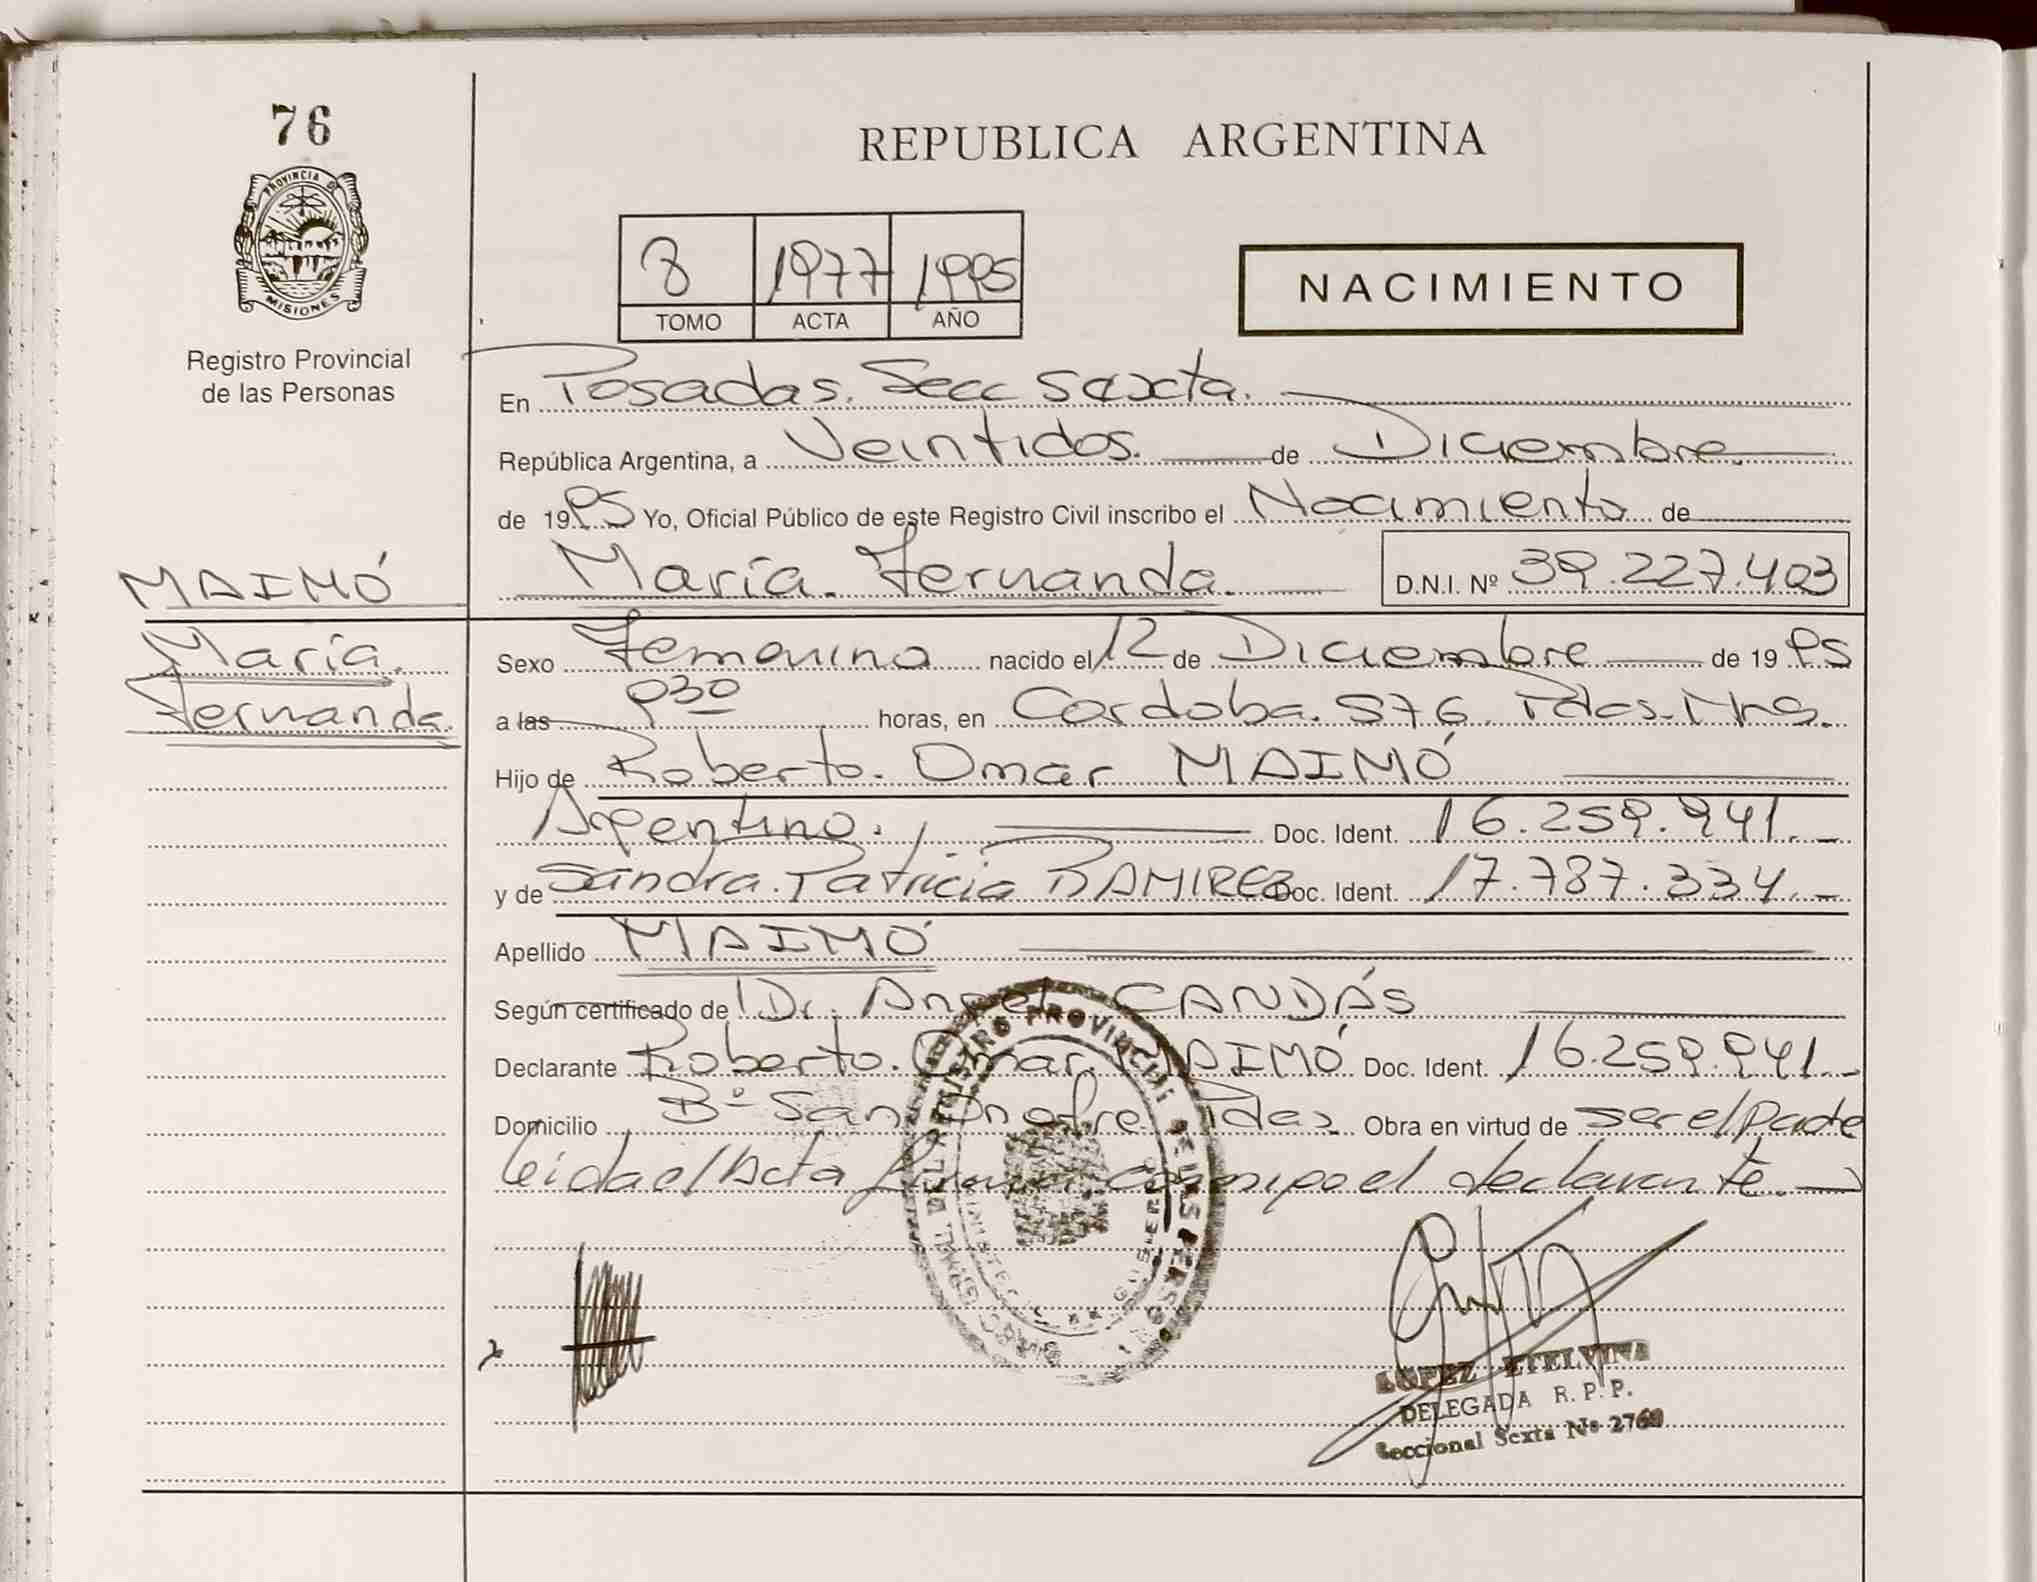 76
PROVINCIA DE
MISIONES
Registro Provincial
de las Personas
REPUBLICA ARGENTINA
8 1977 1995
TOMO ACTA AÑO
NACIMIENTO
En Posadas. Secc Sexta.
República Argentina, a Veintidos. de Diciembre
de 1995 Yo, Oficial Público de este Registro Civil inscribo el Nacimiento de
MAIMÓ
María. Fernanda. D.N.I. Nº 39.227.403
María.
Fernanda.
Sexo Femenino nacido el 12 de Diciembre de 1995
a las 930 horas, en Cordoba. 976 Pdas. Mns.
Hijo de Roberto. Omar MAIMÓ
Argentino. Doc. Ident. 16.259.941.
y de Sandra. Patricia RAMIREZ Doc. Ident. 17.787.334.
Apellido MAIMÓ
Según certificado de Dr. Angel CANDÁS
Declarante Roberto. Omar. MAIMÓ Doc. Ident. 16.259.941
Domicilio Bº San Onofre Pdas Obra en virtud de ser el padre
leida el Acta firma conmigo el declarante.
REGISTRO PROVINCIAL DE LAS PERSONAS
LOPEZ ETELVINA
DELEGADA R. P. P.
Seccional Sexta No 2760